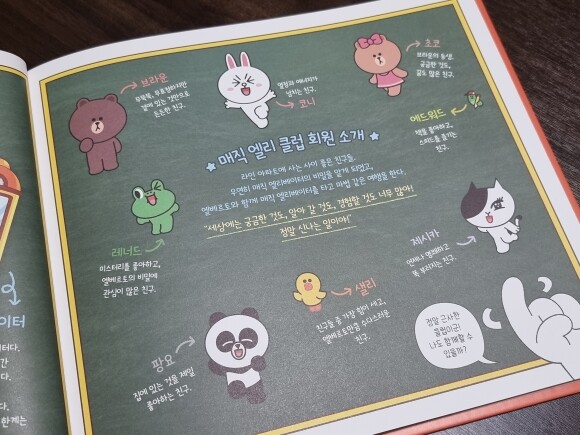 브라운
무뚝뚝, 무표정하지만
곁에 있는 것만으로
든든한 친구.
열정과 에너지가
넘치는 친구.
코니
초코
브라운의 동생.
궁금한 것도,
꿈도 많은 친구.
에드워드
책을 좋아하고,
스피드를 즐기는
친구.
★ 매직 엘리 클럽 회원 소개 ★
라인 아파트에 사는 사이 좋은 친구들.
우연히 매직 엘리베이터의 비밀을 알게 되었고,
엘베르토와 함께 매직 엘리베이터를 타고 마법 같은 여행을 한다.
"세상에는 궁금한 것도, 알아 갈 것도, 경험할 것도 너무 많아!
정말 신나는 일이야!"
레너드
미스터리를 좋아하고,
엘베르토의 비밀에
관심이 많은 친구.
제시카
언제나 명쾌하고
똑 부러지는 친구.
샐리
친구들 중 가장 힘이 세고,
엘베르토만큼 수다스러운
친구.
팡요
집에 있는 것을 제일
좋아하는 친구.
정말 근사한
클럽이군!
나도 함께할 수
있을까?
이터
터다.
간
다.
다.
한계는